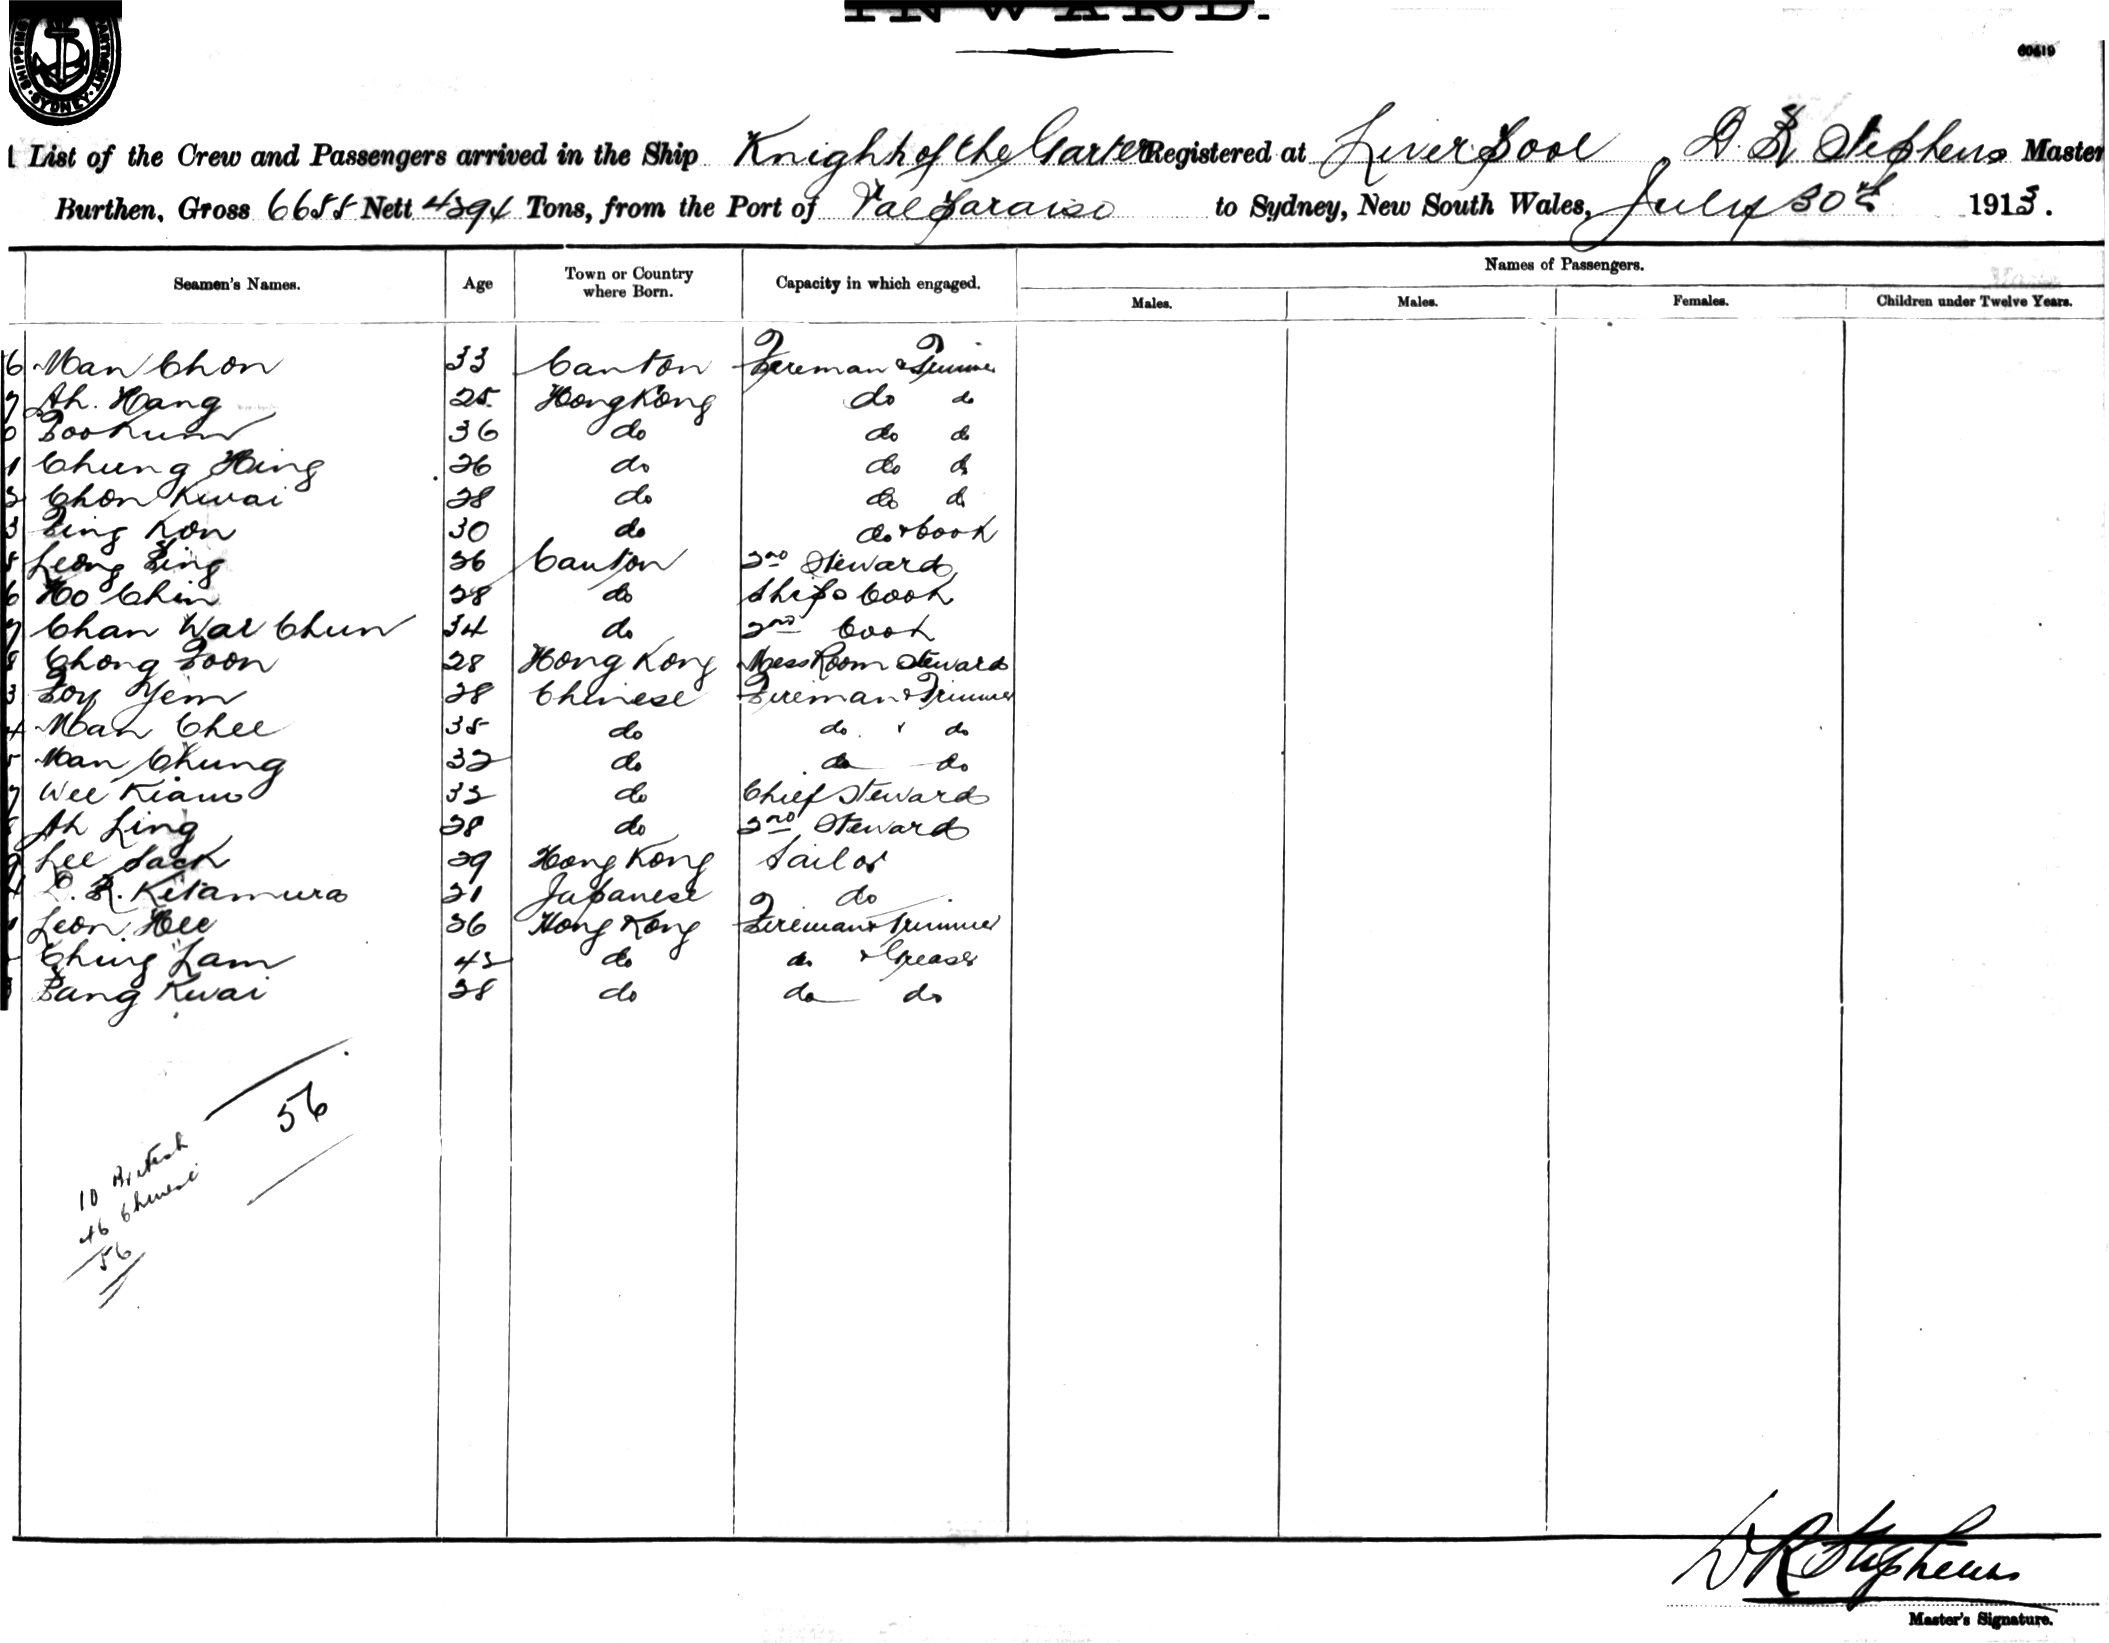 INWARD.
SHIPPING DEPARTMENT SYDNEY
60619
List of the Crew and Passengers arrived in the Ship Knight of the Garter Registered at Liverpool D. R. Stephens Master
Burthen, Gross 6655 Nett 4294 Tons, from the Port of Valparaiso to Sydney, New South Wales, July 30th 1913.
Seamen's Names. Age Town or Country where Born. Capacity in which engaged. Names of Passengers.
Males. Males. Females. Children under Twelve Years.
6 Man Chon 33 Canton Fireman & Trimmer
7 Ah. Hang 25 Hong Kong do do
0 36 do do do
1 Chung Hing 26 do do do
2 Chon Kwai 28 do do do
3 Ting Kon 30 do do & Cook
5 Leong Sing 26 Canton 2nd Steward
6 Ho Chin 28 do Ships Cook
7 Chan Wai Chun 34 do 2nd Cook
8 Chong Soon 28 Hong Kong Mess Room Steward
3 Foy Yem 28 Chinese Fireman & Trimmer
4 Man Chee 35 do do & do
5 Man Chung 32 do do do
7 Wee Kiam 32 do Chief Steward
Ah Ling 28 do 2nd Steward
9 Lee Jack 29 Hong Kong Sailor
R. Kitamura 21 Japanese do
Leon Hee 26 Hong Kong Fireman & Trimmer
Ching Lam 42 do do & Greaser
Kwai 28 do do do
56
10 British
46 Chinese
56
D R Stephens
Master's Signature.